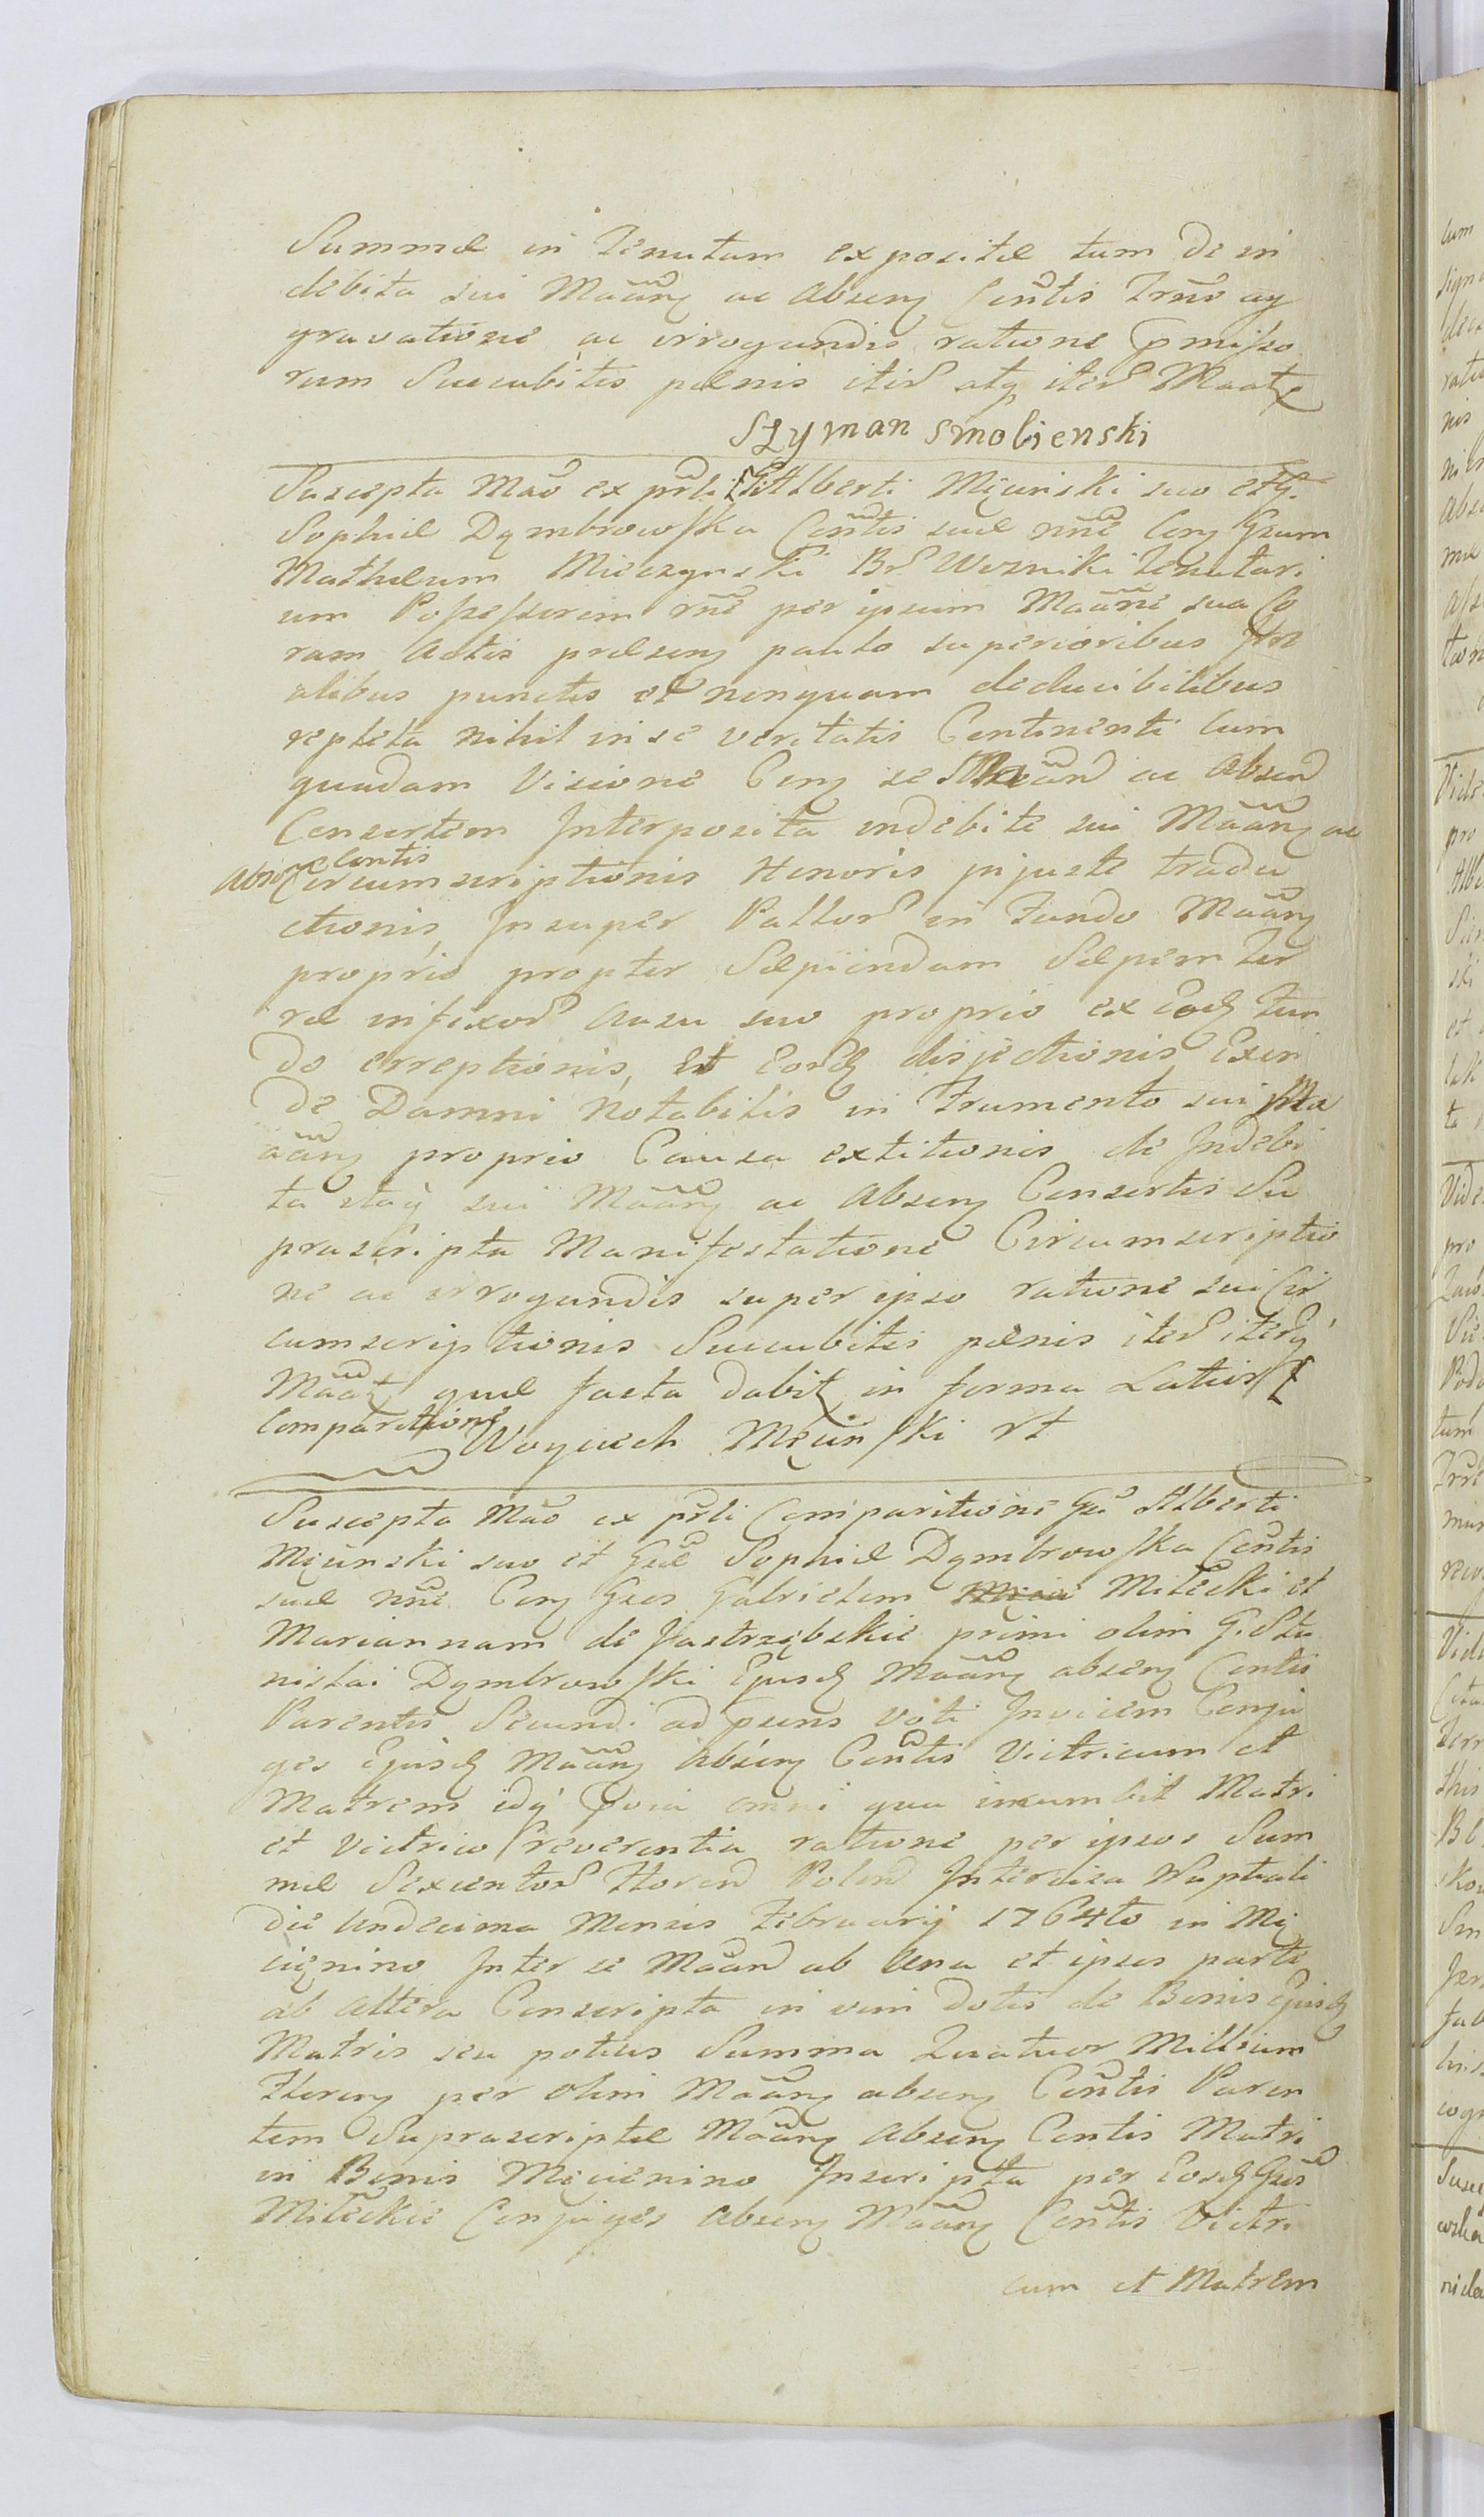 Summæ in Tenutam expositæ tum de in
debita sui Mãang ac Absen Contis Trño ag
gravatione ac irrogandis ratione pmisso
rum Succubitis pœnis itid atq iterd Maatz
Szyman Smolienski
Suscepta Mão ex prli Alberti Męcinski suo et G.
Sophiæ Dąmbrowska Contis suæ nñe Con Gsum
Mathæum Mieczynski Bd Wozniki Tenutari
um Possessorem rñe per ipsum Maãne sua Co
ram Actis præsen paulo superioribus
alibus punctis et nonquam deducibilibus
repleta nihil in se veritatis Continenti Cum
quadam Visione Con se Maãnd ac Absend
Consortem Interposita indebite sui Mãang ac
Absen Contis
Circumscriptionis Honoris injuste tradu
ctionis, Insuper Pallord in Fundo Mãang
proprio propter Sæpiendam Sæpem Ter
ræ infixord Ausu suo proprio ex Eodz Fun
do erreptionis, Et Eordz disjectionis Exin
de Damni Notabilis in Frumento sui Ma
ãang proprio Causa extitionis de Indebi
ta itaq sui Mãang ac Absen Consortis Su
prascripta Manifestatione Circumscriptio
ne ac irrogandis super ipso ratione sui Cir
cumscriptionis Succubitis pœnis iterd iterq
Mãatz quæ facta dabit in forma Latiori
Comparitione
Woyciech Męcinski rt
Suscepta Mão ex prli Comparitione Gsi Alberti
Męcinski suo et Gsæ Sophiæ Dąmbrowska Contis
suæ nñe Con Gsos Gabrielem Miłecki et
Mariannam de Jastrzębskie primi olim G. Sta
nislai Dąmbrowski Ejusdz Mãang absen Contis
Parentis Secundi ad psens voti Invicem Conju
ges Ejusdz Mãang Absen Contis Vitricum et
Matrem idq pvia omni qua incumbit Matri
et Vitrico reverentia ratione per ipsos Sum
mæ Sexcentord Florend Polond Intercisa Nuptiali
die Undecima Mensis Februarij 1764to in Mę
cienino Inter se Mãand ab Una et ipsos parte
ab Altera Conscripta in vim Dotis de Bonis Ejusdz
Matris seu potius Summa Quatuor Millium
Floren per olim Mãang absen Contis Paren
tem Suprascriptæ Mãang Absen Contis Matri
in Bonis Męcienino Inscripta per Eosdz Gsos
Miłeckie Conjuges Absen Mãang Contis Vitri
cum et Matrem